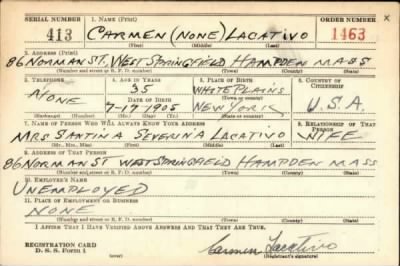 SERIAL NUMBER 1. NAME (Print) ORDER NUMBER
413 CARMEN (NONE) LACATIVO 1463
(First) (Middle) (Last)
2. ADDRESS (Print)
86 NORMAN ST, WEST SPRINGFIELD HAMPDEN MASS
(Number and street or R. F. D. number) (Town) (County) (State)
3. TELEPHONE 4. AGE IN YEARS 5. PLACE OF BIRTH 6. COUNTRY OF CITIZENSHIP
NONE 35 WHITE PLAINS
DATE OF BIRTH (Town or county)
7-19-1905 NEW YORK U.S.A.
(Exchange) (Number) (Mo.) (Day) (Yr.) (State or country)
7. NAME OF PERSON WHO WILL ALWAYS KNOW YOUR ADDRESS 8. RELATIONSHIP OF THAT PERSON
MRS SANTINA SEVERINA LACATIVO WIFE
(Mr., Mrs., Miss) (First) (Middle) (Last)
9. ADDRESS OF THAT PERSON
86 NORMAN ST WEST SPRINGFIELD HAMPDEN MASS
(Number and street or R. F. D. number) (Town) (County) (State)
10. EMPLOYER'S NAME
UNEMPLOYED
11. PLACE OF EMPLOYMENT OR BUSINESS
NONE
(Number and street or R. F. D. number) (Town) (County) (State)
I AFFIRM THAT I HAVE VERIFIED ABOVE ANSWERS AND THAT THEY ARE TRUE.
REGISTRATION CARD
D. S. S. Form 1 Carmen Lacativo
(Registrant's signature)